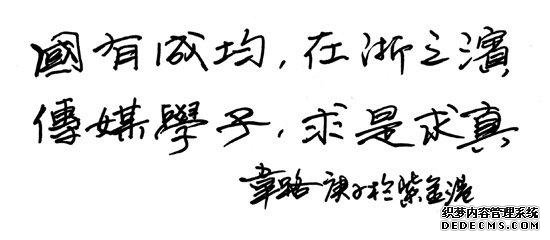 國有成均，在浙之濱
傳媒學子，求是求真
韋路 庚子於紫金港
织梦内容管理系统
DEDECMS.COM